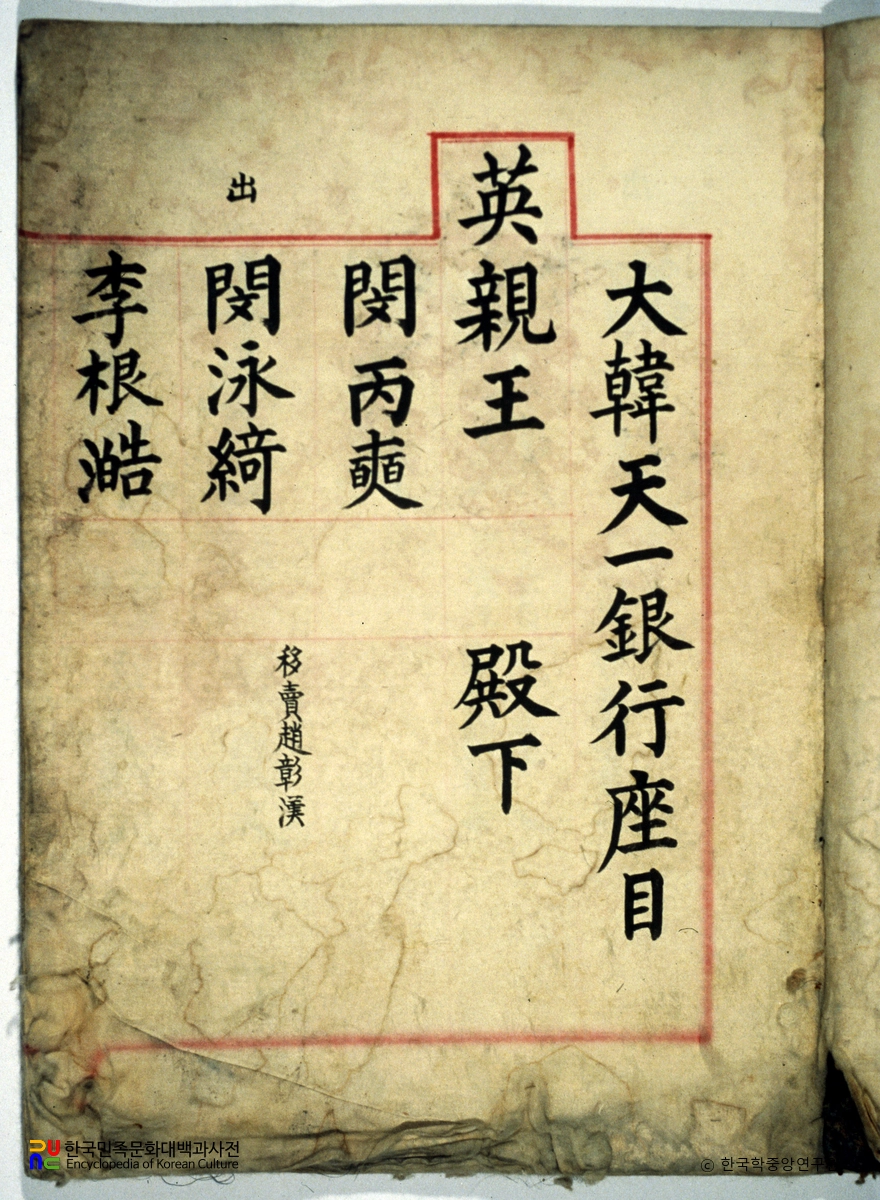 大韓天一銀行座目
英親王 殿下
閔丙奭
移賣趙彰漢
出
閔泳綺
李根澔
한국민족문화대백과사전
Encyclopedia of Korean Culture
© 한국학중앙연구